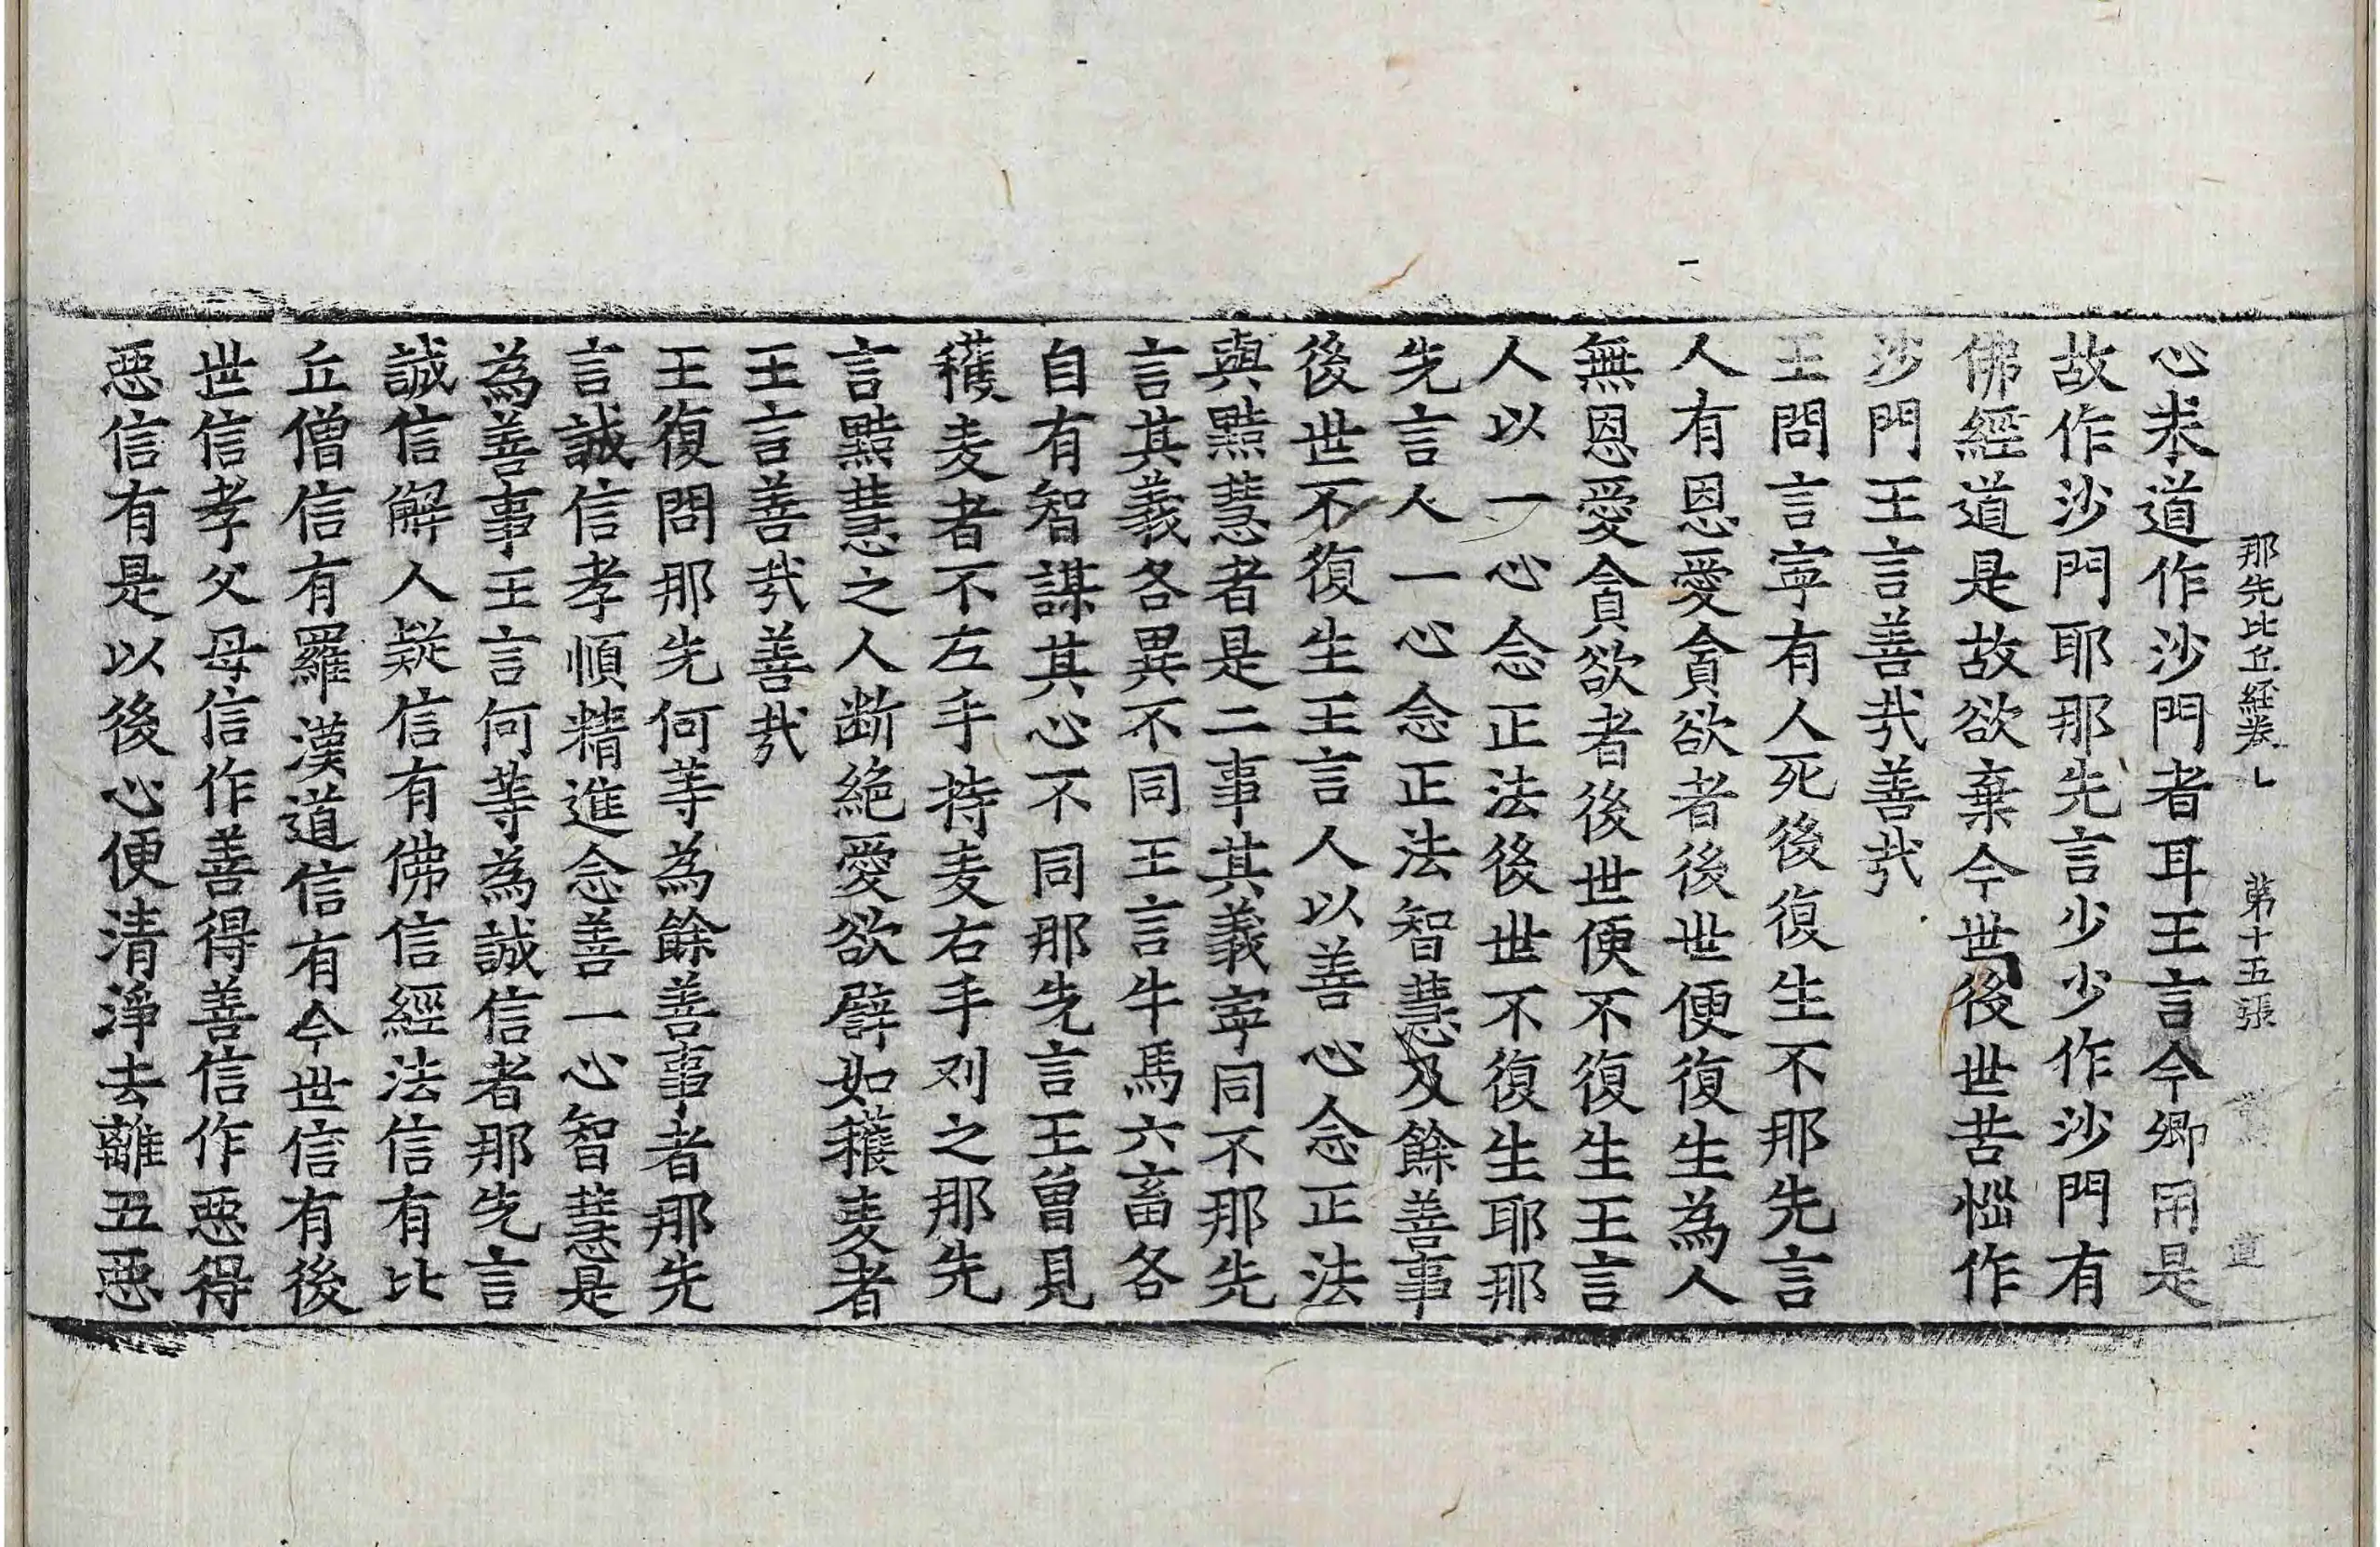 那先比丘経卷上 第十五張 道
心求道作沙門者耳王言今卿用是
故作沙門耶那先言少少作沙門有
佛經道是故欲棄今世後世苦惱作
沙門王言善㢤善㢤
王問言寧有人死後復生不那先言
人有恩愛貪欲者後世便復生為人
無恩愛貪欲者後世便不復生王言
人以一心念正法後世不復生耶那
先言人一心念正法智慧及餘善事
後世不復生王言人以善心念正法
與黠慧者是二事其義寧同不那先
言其義各異不同王言牛馬六畜各
自有智謀其心不同那先言王曽見
穫麦者不左手持麦右手刈之那先
言黠慧之人断絶愛欲譬如穫麦者
王言善㢤善㢤
王復問那先何等為餘善事者那先
言誠信孝順精進念善一心智慧是
為善事王言何等為誠信者那先言
誠信解人疑信有佛信經法信有比
丘僧信有羅漢道信有今世信有後
世信孝父母信作善得善信作惡得
惡信有是以後心便清淨去離五惡